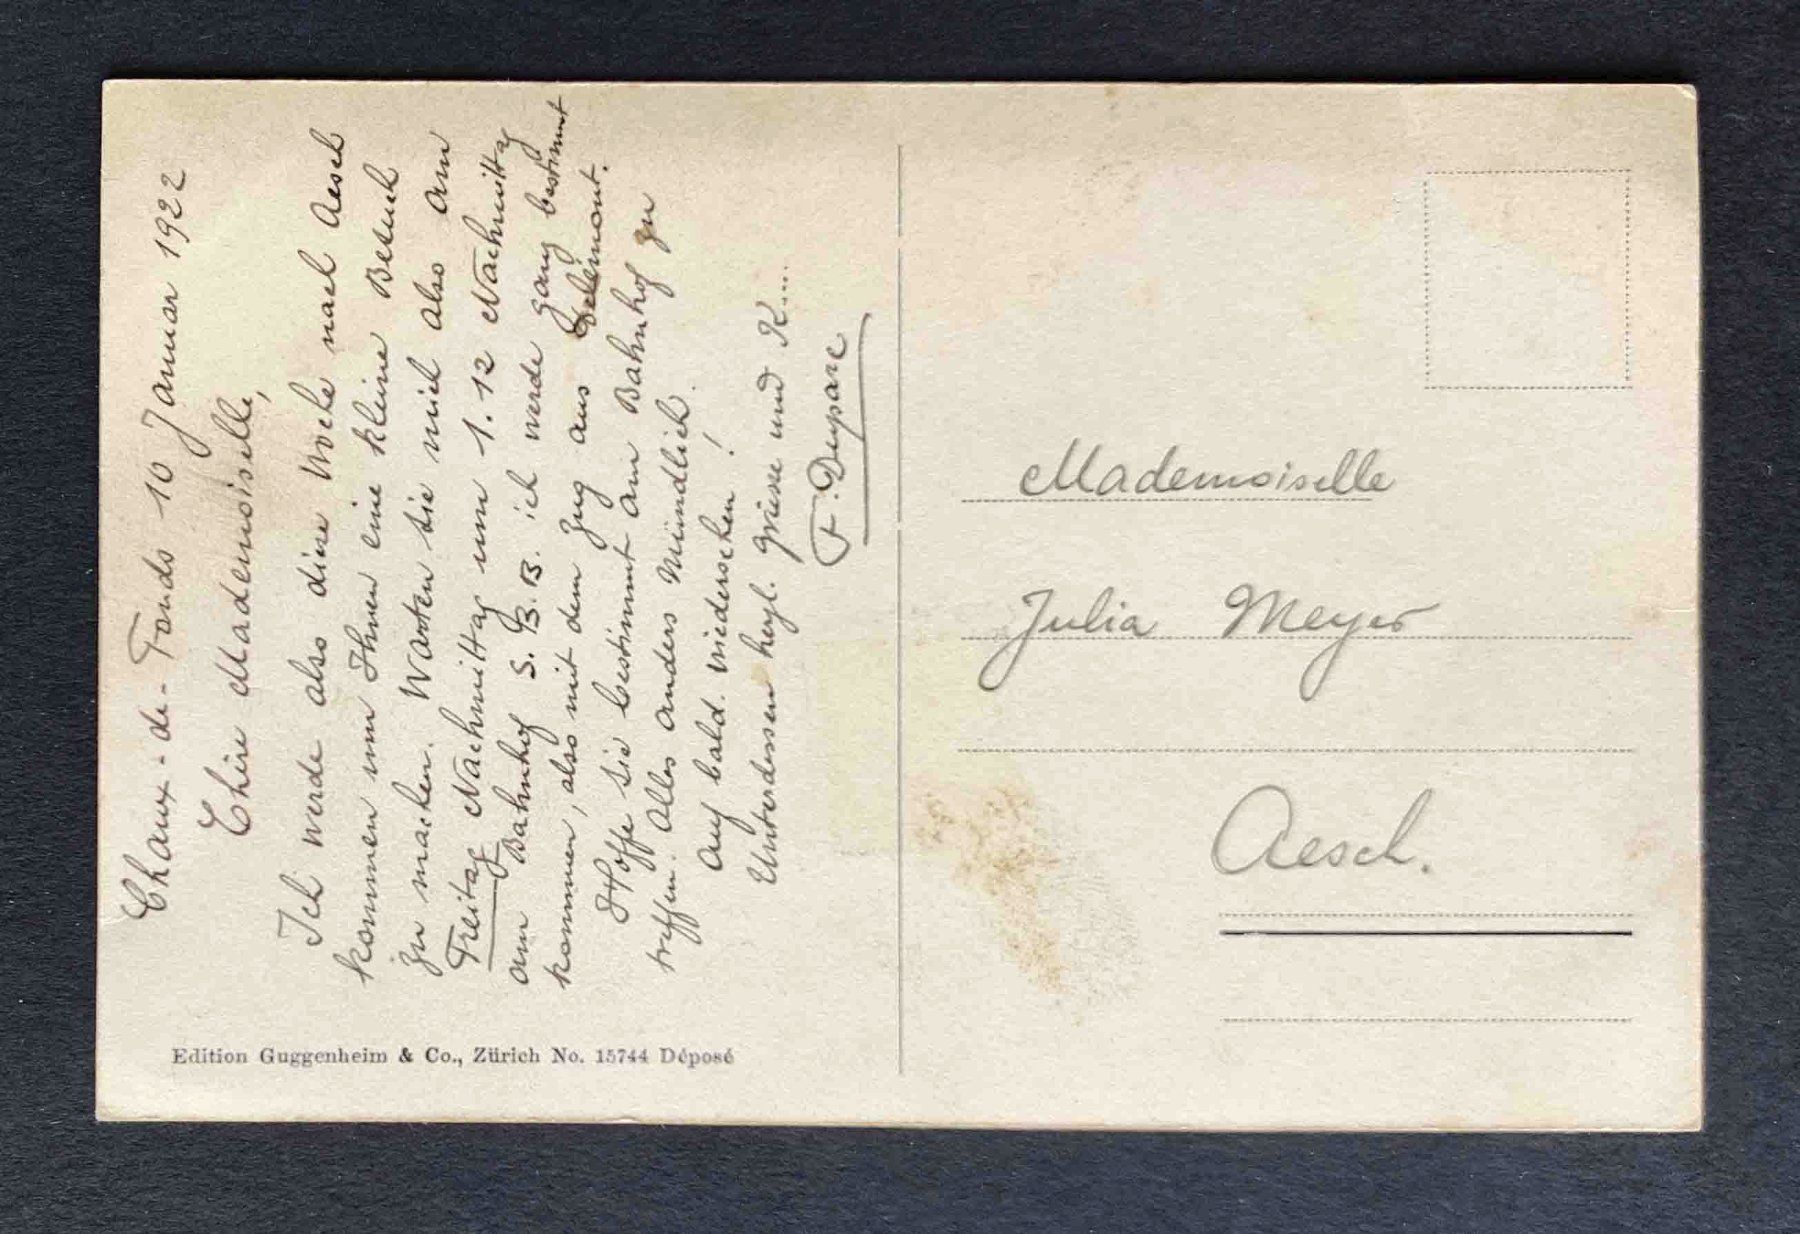 Chaux-de-Fonds 10 Januar 1922
Chère Mademoiselle,
Ich werde also diese Woche nach Aesch
kommen um Ihnen eine kleine Besuch
zu machen. Warten Sie mich also am
Freitag Nachmittag um 1.12 Nachmittag
am Bahnhof S.B.B. ich werde ganz bestimmt
kommen, also mit dem Zug aus Delémont.
Hoffe Sie bestimmt am Bahnhof zu
treffen. Alles anders Mündlich.
Auf bald. wiedersehen!
Unterdessen herzl. Grüsse und K....
F. Duparc
Edition Guggenheim & Co., Zürich No. 15744 Déposé
Mademoiselle
Julia Meyer
Aesch.